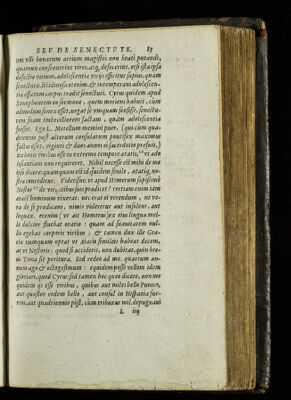 SEV DE SENECTVTE. 83
me vlli bonarum artium magistri non beati putandi,
quamuis consenuerint vires, atq; defecerint. etsi ista ipsa
defectio virium, adolescentiæ vitijs efficitur sæpius, quam
senectutis. libidinosa etenim, & intemperans adolescen-
tia effœtum corpus tradit senectuti. Cyrus quidem apud
Xenophontem eo sermone, quem moriens habuit, cum
admodum senex esset, negat se vnquam sensisse, senectu-
tem suam imbecilliorem factam, quàm adolescentia
fuisset. Ego L. Metellum memini puer, (qui cum qua-
driennio post alterum consulatum pontifex maximus
factus esset, viginti & duos annos ei sacerdotio præfuit)
ita bonis viribus esse in extremo tempore ætatis, vt ado
lescentiam non requireret. Nihil necesse est mihi de me
ipso dicere, quamquam est id quidem senile, ætatiq; no-
stræ conceditur. Videtisne, vt apud Homerum sæpissime
Nestor de virtutibus suis prædicet? tertiam enim iam
ætatē hominum vixerat. nec erat ei verendum, ne ve-
ra de se prædicans, nimis videretur aut insolens, aut
loquax. etenim (vt ait Homerus) ex eius lingua mel-
le dulcior fluebat oratio: quam ad suauitatem nul-
lis egebat corporis viribus: & tamen dux ille Græ-
ciæ nunquam optat vt Aiacis similes habeat decem,
at vt Nestoris: quod si acciderit, non dubitat, quin bre-
ui Troia sit peritura. Sed redeo ad me. quartum an-
num ago & octogesimum: equidem posse vellem idem
gloriari, quod Cyrus: sed tamen hoc queo dicere, non me
quidem ijs esse viribus, quibus aut miles bello Punico,
aut quæstor eodem bello, aut consul in Hispania fue-
rim, aut quadriennio pòst, cum tribunus mil. depugnaui
L iij